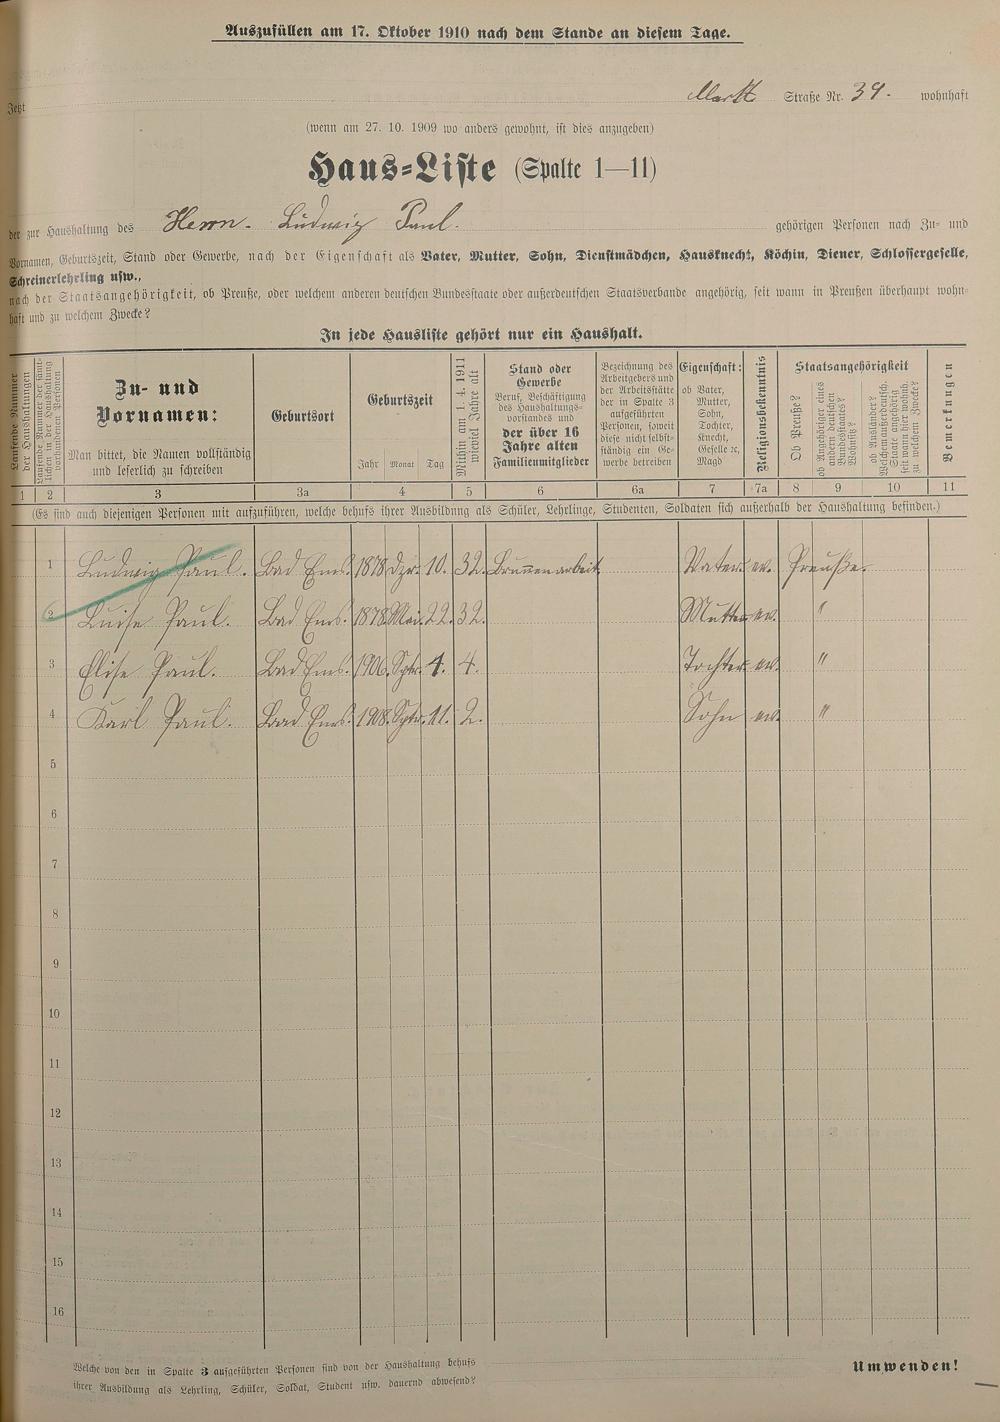 Auszufüllen am 17. Oktober 1910 nach dem Stande an diesem Tage.
Jetzt Markt Straße Nr. 39. wohnhaft
(wenn am 27. 10. 1909 wo anders gewohnt, ist dies anzugeben)
Haus=Liste (Spalte 1—11)
der zur Haushaltung des Herrn. Ludwig Paul. gehörigen Personen nach Zu- und
Vornamen, Geburtszeit, Stand oder Gewerbe, nach der Eigenschaft als Vater, Mutter, Sohn, Dienstmädchen, Hausknecht, Köchin, Diener, Schlossergeselle,
Schreinerlehrling usw.,
nach der Staatsangehörigkeit, ob Preuße, oder welchem anderen deutschen Bundesstaate oder außerdeutschen Staatsverbande angehörig, seit wann in Preußen überhaupt wohn-
haft und zu welchem Zwecke?
In jede Hausliste gehört nur ein Haushalt.
Laufende Nummer
der Haushaltungen
Laufende Nummer der sämt-
lichen in der Haushaltung
vorhandenen Personen
Zu- und
Vornamen:
Man bittet, die Namen vollständig
und leserlich zu schreiben
Geburtsort
Geburtszeit
Jahr Monat Tag
Mithin am 1. 4. 1911
wieviel Jahre alt
Stand oder
Gewerbe
Beruf, Beschäftigung
des Haushaltungs-
vorstandes und
der über 16
Jahre alten
Familienmitglieder
Bezeichnung des
Arbeitgebers und
der Arbeitsstätte
der in Spalte 3
aufgeführten
Personen, soweit
diese nicht selbst-
ständig ein Ge-
werbe betreiben
Eigenschaft:
ob Vater,
Mutter,
Sohn,
Tochter,
Knecht,
Geselle ꝛc,
Magd
Religionsbekenntnis
Staatsangehörigkeit
Ob Preuße?
ob Angehöriger eines
andern deutschen
Bundesstaates?
Woher?
ob Ausländer?
Welchem außerdeutsch.
Staate angehörig
seit wann hier wohnh.
zu welchem Zwecke?
Bemerkungen
1 2 3 3a 4 5 6 6a 7 7a 8 9 10 11
(Es sind auch diejenigen Personen mit aufzuführen, welche behufs ihrer Ausbildung als Schüler, Lehrlinge, Studenten, Soldaten sich außerhalb der Haushaltung befinden.)
1 Ludwig Paul. Bad Ems. 1878 Dzr. 10. 32. Brunnenarbeit. Vater. ev. Preuße.
2 Luise Paul. Bad Ems. 1878. Mai. 22. 32. Mutter ev. "
3 Elise Paul. Bad Ems. 1906. Sptr. 4. 4. Tochter. ev. "
4 Karl Paul. Bad Ems. 1908. Sptr. 11. 2. Sohn ev. "
5
6
7
8
9
10
11
12
13
14
15
16
Welche von den in Spalte 3 aufgeführten Personen sind von der Haushaltung behufs
ihrer Ausbildung als Lehrling, Schüler, Soldat, Student usw. dauernd abwesend?
Umwenden!